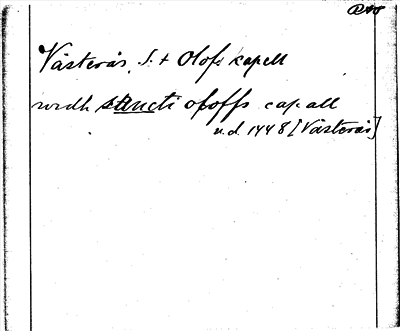 RAP
Västerås, S:t Olofs kapell
widh sancti oloffs capall
u.d. 1448 [Västerås]